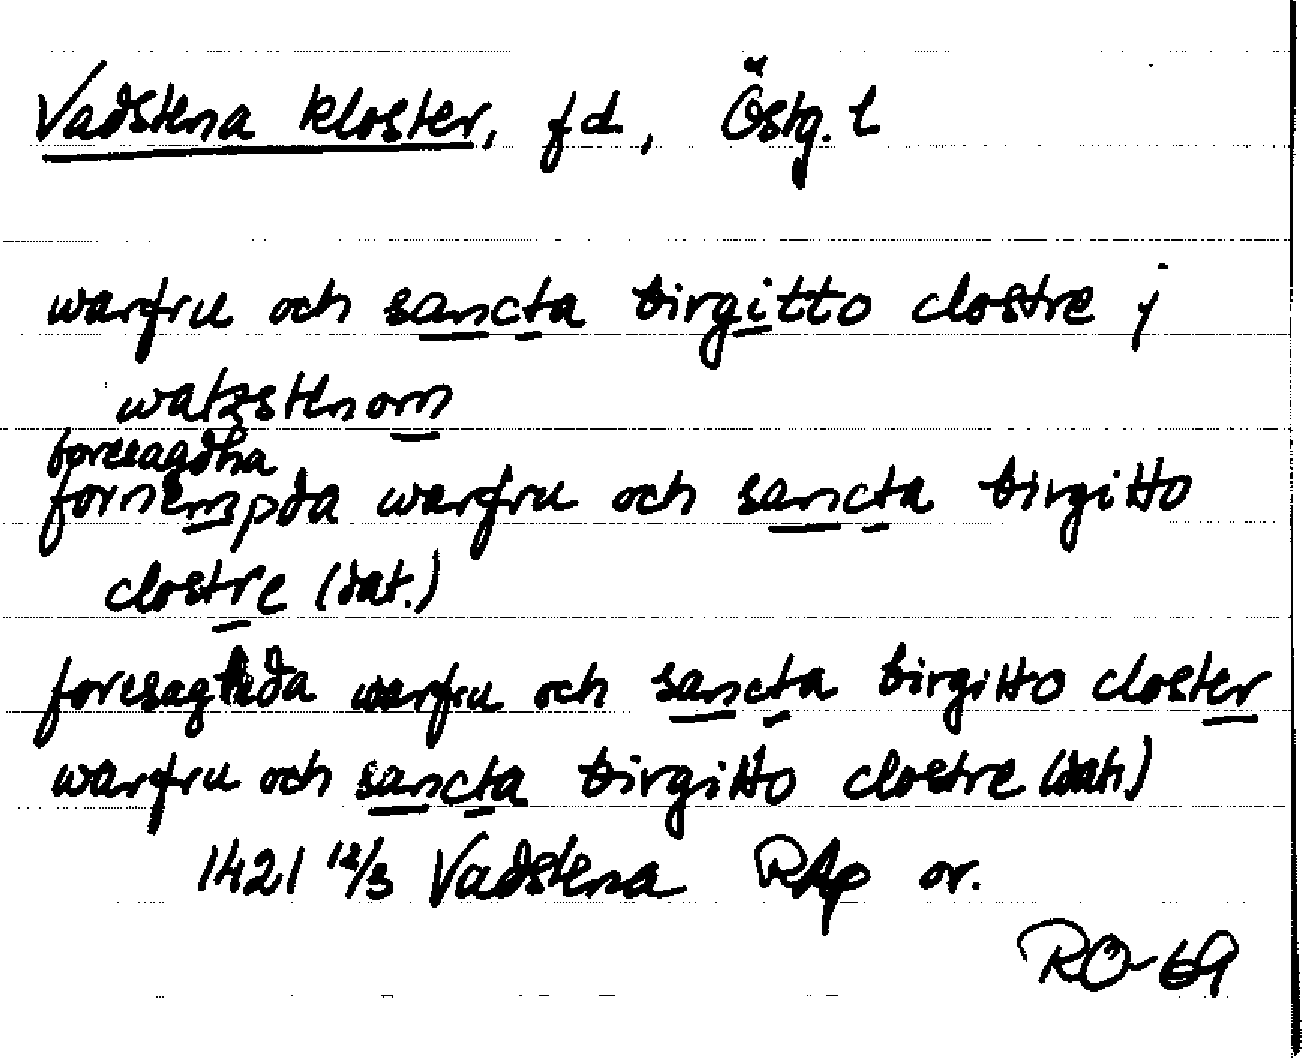 Vadstena kloster, fd, Östg. l
warfru och sancta birgitto clostre j
watzstenom
foresagdha
fornempda warfru och sancta birgitto
clostre (dat.)
foresaghda warfru och sancta birgitto closter
warfru och sancta birgitto clostre (dat.)
1421 12/3 Vadstena RAp or.
RO-69